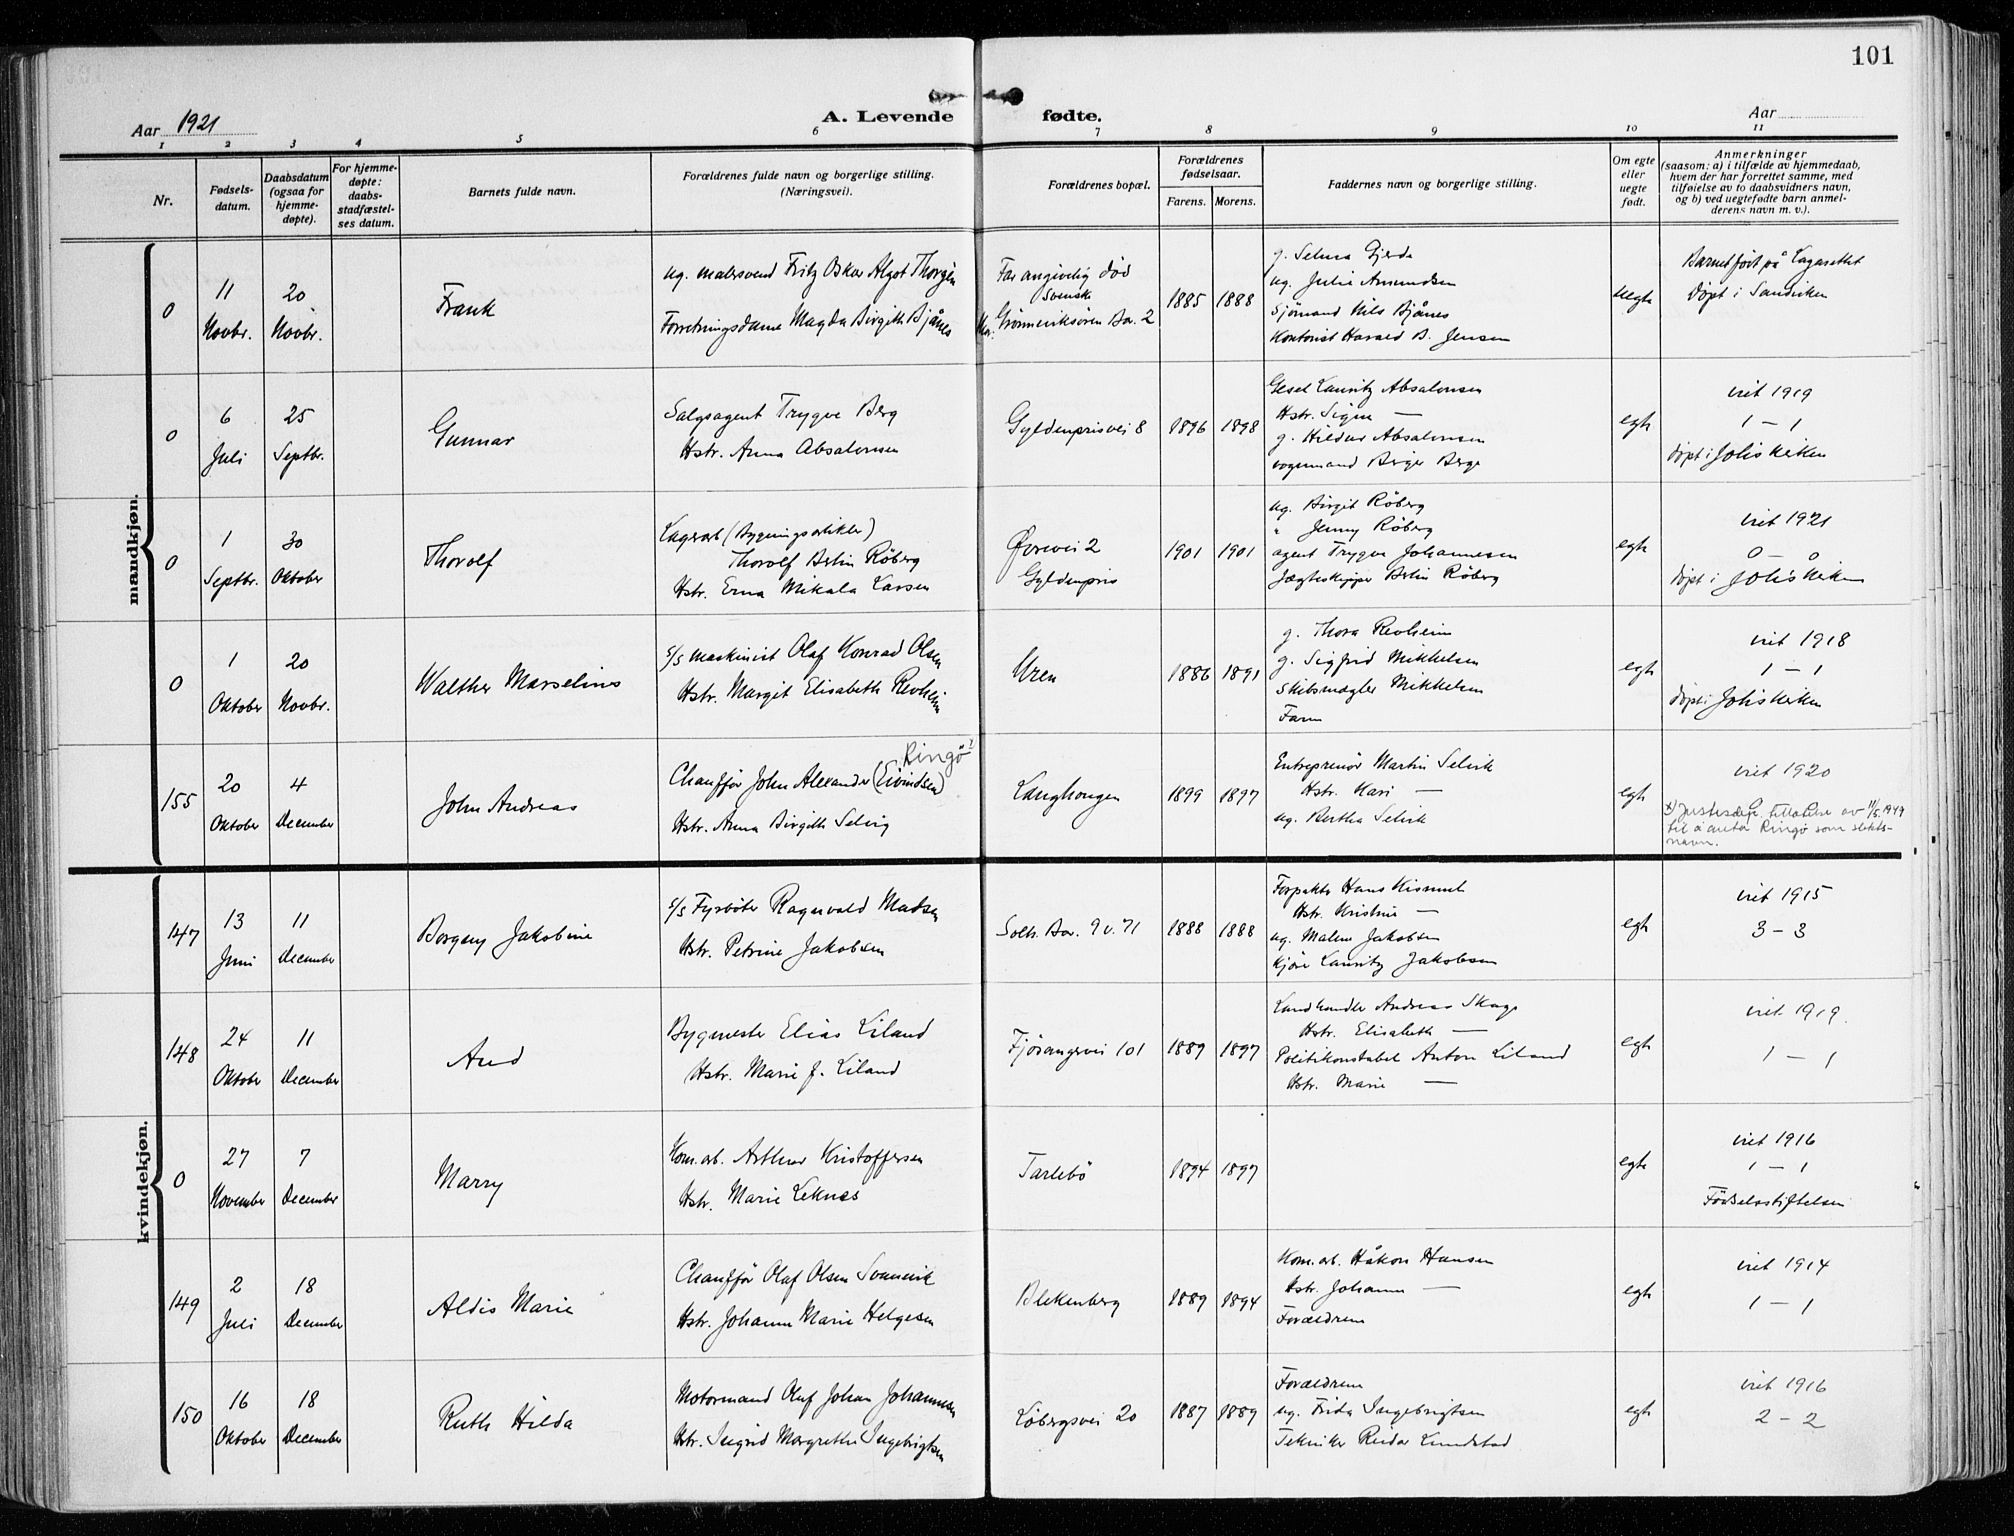 101
Aar 1921
A. Levende fødte.
Aar
1 2 3 4 5 6 7 8 9 10 11
Nr.
Fødsels-
datum.
Daabsdatum
(ogsaa for
hjemme-
døpte).
For hjemme-
døpte:
daabs-
stadfæstel-
ses datum.
Barnets fulde navn.
Forældrenes fulde navn og borgerlige stilling.
(Næringsvei).
Forældrenes bopæl.
Forældrenes
fødselsaar.
Farens. Morens.
Faddernes navn og borgerlige stilling.
Om egte
eller
uegte
født.
Anmerkninger
(saasom: a) i tilfælde av hjemmedaab,
hvem der har forrettet samme, med
tilføielse av to daabsvidners navn,
og b) ved uegtefødte barn anmel-
derens navn m. v.).
mandkjøn.
0
11
Novbr.
20
Novbr.
Frank
ug. malersvend Fritz Oskar Algot Thorgin
Forretningsdame Magda Birgith Bjånes
Far angivelig død
svensk
Mor: Grønneviksøren Bar. 2
1885 1888
g. Selma Gjerde
ug. Julie Amundsen
Sjømand Nils Bjånes
Kontorist Harald B. Jensen
uegte
Barnet født på Lazarettet
Døpt i Sandviken
0
6
Juli
25
Septbr.
Gunnar
Salgsagent Trygve Berg
Hstr. Anna Absalonsen
Gyldenprisvei 8
1896 1898
Gesel Lauritz Absalonsen
Hstr. Signe —
g. Hildur Absalonsen
vognmand Birger Berge
egte
viet 1919
1 – 1
døpt i Johskirken
0
1
Septbr.
30
Oktober
Thorolf
Lagerarb (Bygningsartikler)
Thorolf Bertin Røberg
Hstr. Erna Mikala Larsen
Øvrevei 2
Gyldenpris
1901 1901
ug. Birgit Røberg
" Jenny Røberg
agent Trygve Johannesen
Jægteskipper Bertin Røberg
egte
viet 1921
0 – 0
døpt i Johskirken
0
1
Oktober
20
Novbr.
Walther Marselius
s/s maskinist Olaf Konrad Olsen
Hstr. Margit Elisabeth Revheim
Uren
1886 1891
g. Thora Revheim
g. Sigfrid Mikkelsen
Skibsmægler Mikkelsen
Faren
egte
viet 1918
1 – 1
døpt i Johskirken
155
20
Oktober
4
December
John Andreas
Ringø
Chauffør John Alexander (Eivindsen)
Hstr. Anna Birgith Selvig
Langhaugen
1899 1897
Entreprenør Martin Selvik
Hstr. Kari —
ug. Bertha Selvik
egte
viet 1920
x) Justisdep. tillatelse av 11/5.1949
til å anta Ringø som slekts-
navn.
kvindekjøn.
147
13
Juni
11
December
Borgny Jakobine
s/s Fyrbøter Ragnvald Madsen
Hstr. Petrine Jakobsen
Solh. Bar. 9 v. 71
1888 1888
Forpakter Hans Kismul
Hstr. Kristine —
ug. Malene Jakobsen
Kjører Lauritz Jakobsen
egte
viet 1915
3 – 3
148
24
Oktober
11
December
Aud
Bygmester Elias Liland
Hstr. Marie J. Liland
Fjøsangervei 101
1889 1897
Landhandler Andreas Skage
Hstr. Elisabeth —
Politikonstabel Anton Liland
Hstr. Marie —
egte
viet 1919.
1 – 1
0
27
November
7
December
Marry
Kom. arb. Arthur Kristoffersen
Hstr. Marie Leknes
Tarlebø
1894 1897
egte
viet 1916
1 – 1
Fødselsstiftelsen
149
2
Juli
18
December
Aldis Marie
Chauffør Olaf Olsen Svanevik
Hstr. Johanne Marie Helgesen
Blekenberg
1889 1894
Kom. arb. Håkon Hansen
Hstr. Johanne —
Forældrene
egte
viet 1914
1 – 1
150
16
Oktober
18
December
Ruth Hilda
Motormand Oluf Johan Johannesen
Hstr. Ingrid Margrethe Ingebrigtsen
Løbergsvei 20
1887 1889
Forældrene
ug. Frida Ingebrigtsen
Tekniker Reidar Lundstad
egte
viet 1916
2 – 2